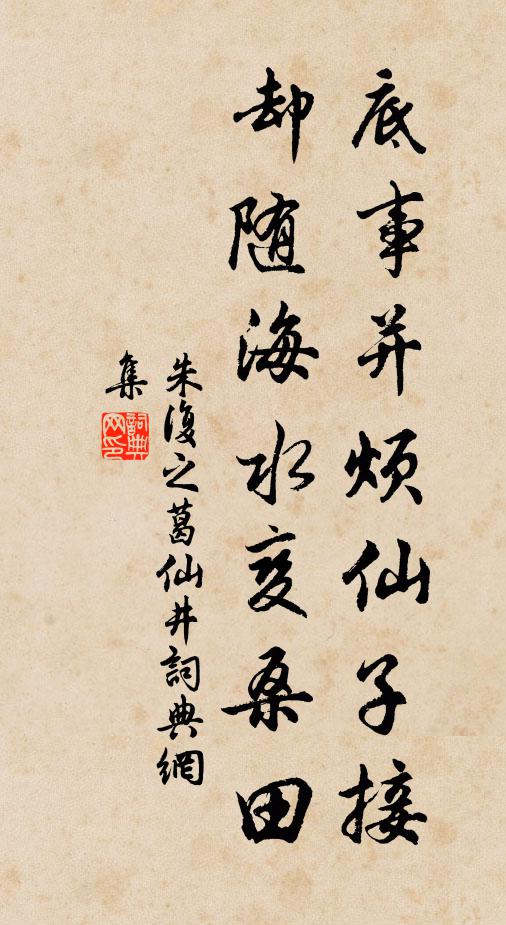 底事并烦仙子接
却随海水变桑田
朱復之葛仙井詞典網
集
詞典
网印